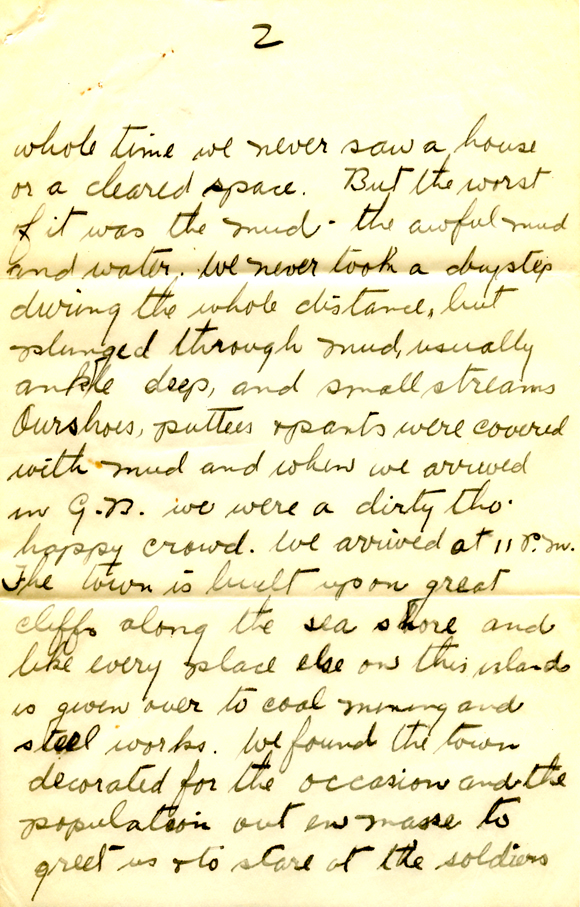 2
whole time we never saw a house
or a cleared space. But the worst
of it was the mud - the awful mud
and water. We never took a dry step
during the whole distance, but
plunged through mud, usually
ankle deep, and small streams
Our shoes, puttees & pants were covered
with mud and when we arrived
in G.B. we were a dirty tho'
happy crowd. We arrived at 11 P.M.
The town is built upon great
cliffs along the sea shore and
like every place else on this island
is given over to coal mining and
steel works. We found the town
decorated for the occasion and the
population out en masse to
greet us & to stare at the soldiers